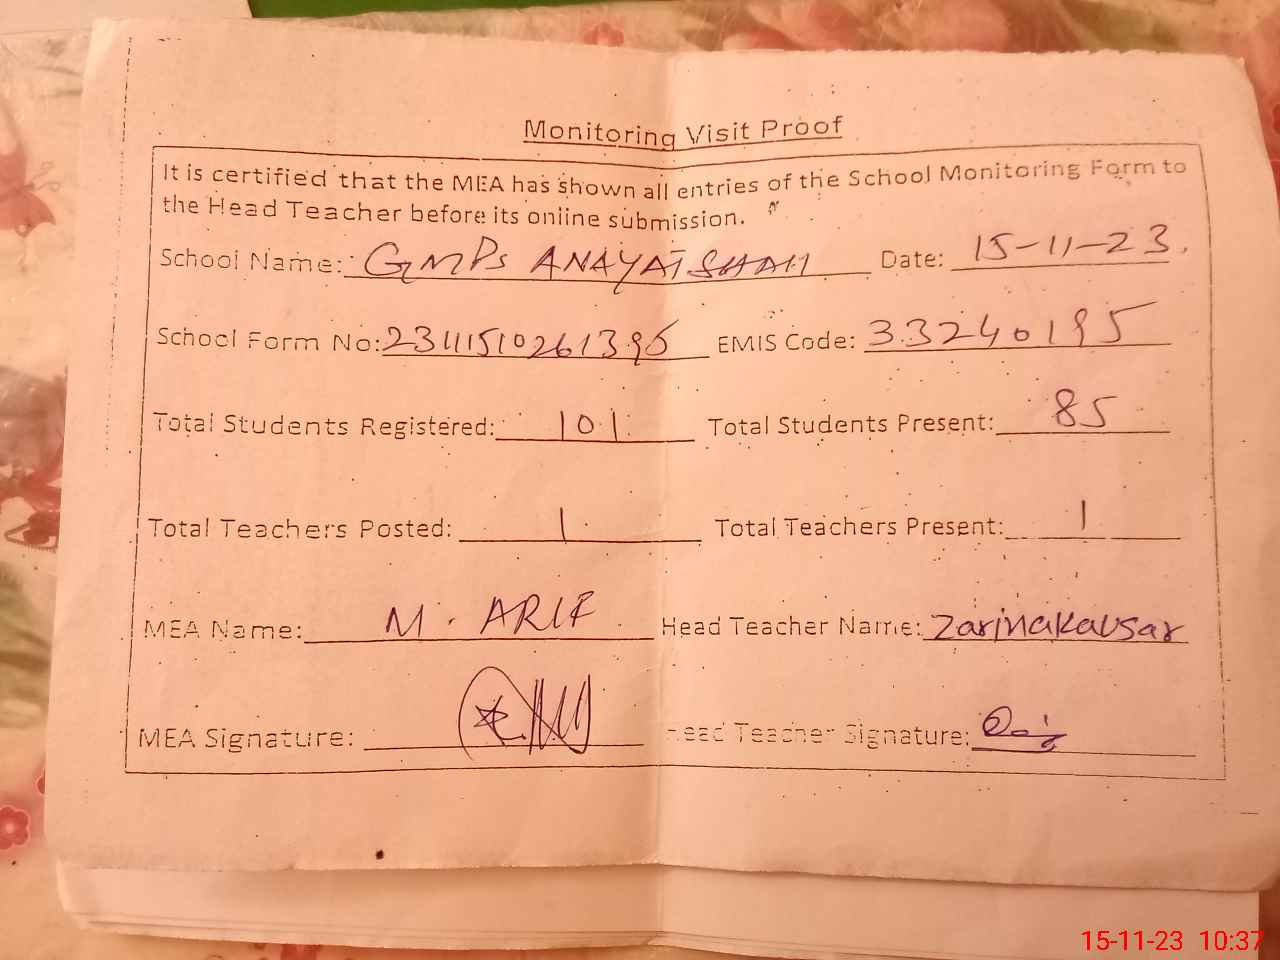 Monitoring Visit Proof
It is certified that the MEA has shown all entries of the School Monitoring Form to
the Head Teacher before its online submission.
School Name: GMPS ANAYAT SHAH Date: 15-11-23
School Form No: 23111510261396 EMIS Code: 33240195
Total Students Registered: 101 Total Students Present: 85
Total Teachers Posted: 1 Total Teachers Present: 1
MEA Name: M. ARIF Head Teacher Name: Zarinakausar
MEA Signature: Head Teacher Signature:
15-11-23 10:37